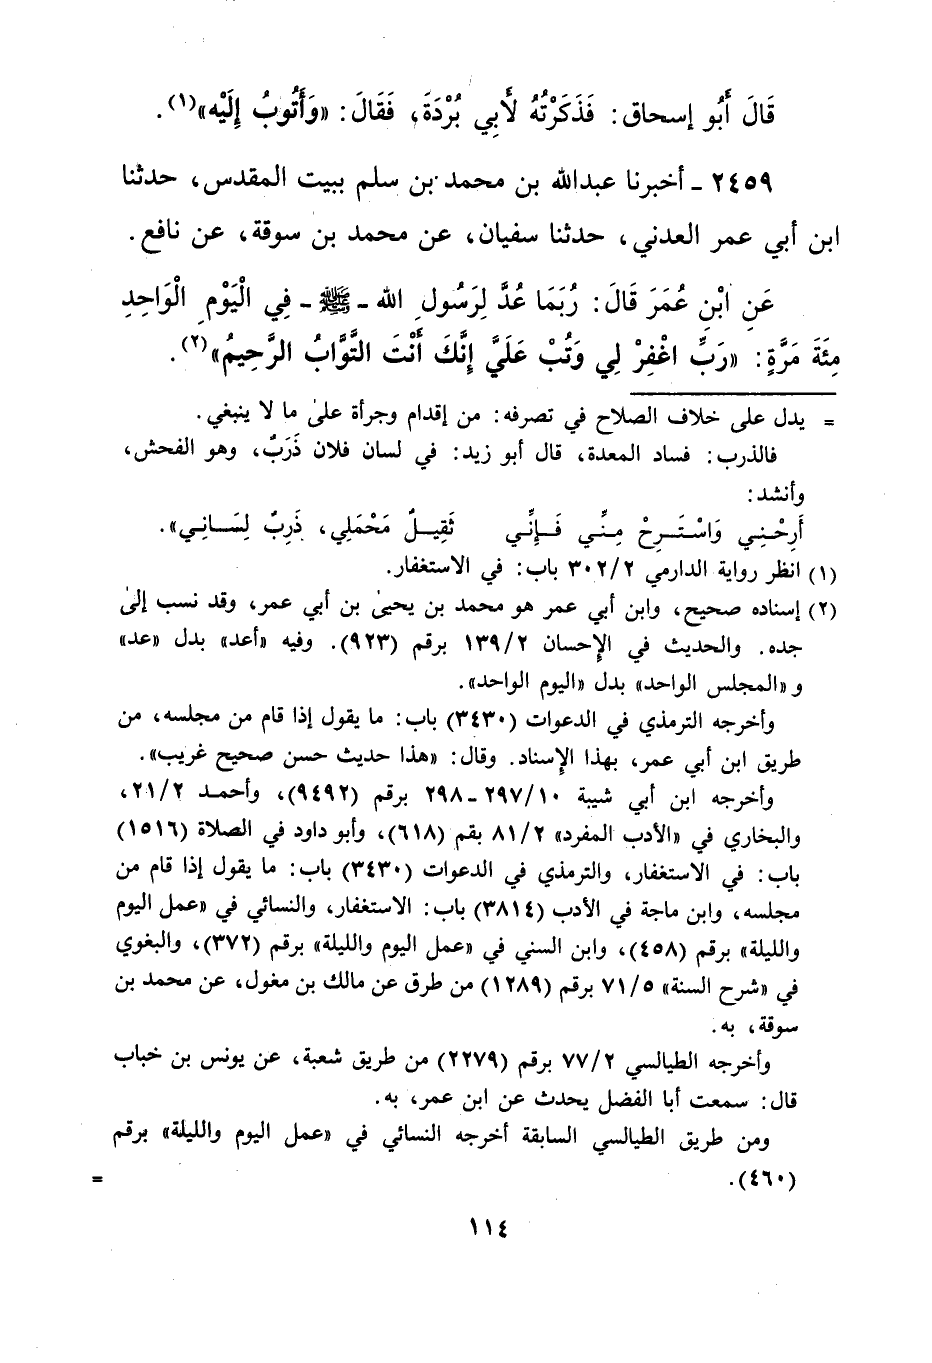 قَالَ أَبُو إسحاق: فَذَكَرْتُهُ لأَبِي بُرْدَةَ، فَقَالَ: «وَأَتُوبُ إِلَيْه»(١).
٢٤٥٩ ـ أخبرنا عبدالله بن محمد بن سلم ببيت المقدس، حدثنا
ابن أبي عمر العدني، حدثنا سفيان، عن محمد بن سوقة، عن نافع.
عَنِ ابْنِ عُمَرَ قَالَ: رُبَمَا عُدَّ لِرَسُولِ الله ـ ﷺ ـ فِي الْيَوْمِ الْوَاحِدِ
مِئَةَ مَرَّةٍ: «رَبِّ اغْفِرْ لِي وَتُبْ عَلَيَّ إِنَّكَ أَنْتَ التَّوَّابُ الرَّحِيمُ»(٢).
= يدل على خلاف الصلاح في تصرفه: من إقدام وجرأة على ما لا ينبغي.
فالذرب: فساد المعدة، قال أبو زيد: في لسان فلان ذَرَبٌ، وهو الفحش،
وأنشد:
أَرِحْنِي وَاسْتَرِحْ مِنِّي فَإِنِّي ثَقِيلٌ مَحْمَلِي، ذَرِبٌ لِسَانِي».
(١) انظر رواية الدارمي ٣٠٢/٢ باب: في الاستغفار.
(٢) إسناده صحيح، وابن أبي عمر هو محمد بن يحيى بن أبي عمر، وقد نسب إلى
جده. والحديث في الإحسان ١٣٩/٢ برقم (٩٢٣). وفيه «أعد» بدل «عد»
و «المجلس الواحد» بدل «اليوم الواحد».
وأخرجه الترمذي في الدعوات (٣٤٣٠) باب: ما يقول إذا قام من مجلسه، من
طريق ابن أبي عمر، بهذا الإسناد. وقال: «هذا حديث حسن صحيح غريب».
وأخرجه ابن أبي شيبة ٢٩٧/١٠ ـ ٢٩٨ برقم (٩٤٩٢)، وأحمد ٢١/٢،
والبخاري في «الأدب المفرد» ٨١/٢ بقم (٦١٨)، وأبو داود في الصلاة (١٥١٦)
باب: في الاستغفار، والترمذي في الدعوات (٣٤٣٠) باب: ما يقول إذا قام من
مجلسه، وابن ماجة في الأدب (٣٨١٤) باب: الاستغفار، والنسائي في «عمل اليوم
والليلة» برقم (٤٥٨)، وابن السني في «عمل اليوم والليلة» برقم (٣٧٢)، والبغوي
في «شرح السنة» ٧١/٥ برقم (١٢٨٩) من طرق عن مالك بن مغول، عن محمد بن
سوقة، به.
وأخرجه الطيالسي ٧٧/٢ برقم (٢٢٧٩) من طريق شعبة، عن يونس بن خباب
قال: سمعت أبا الفضل يحدث عن ابن عمر، به.
ومن طريق الطيالسي السابقة أخرجه النسائي في «عمل اليوم والليلة» برقم
(٤٦٠). =
١١٤